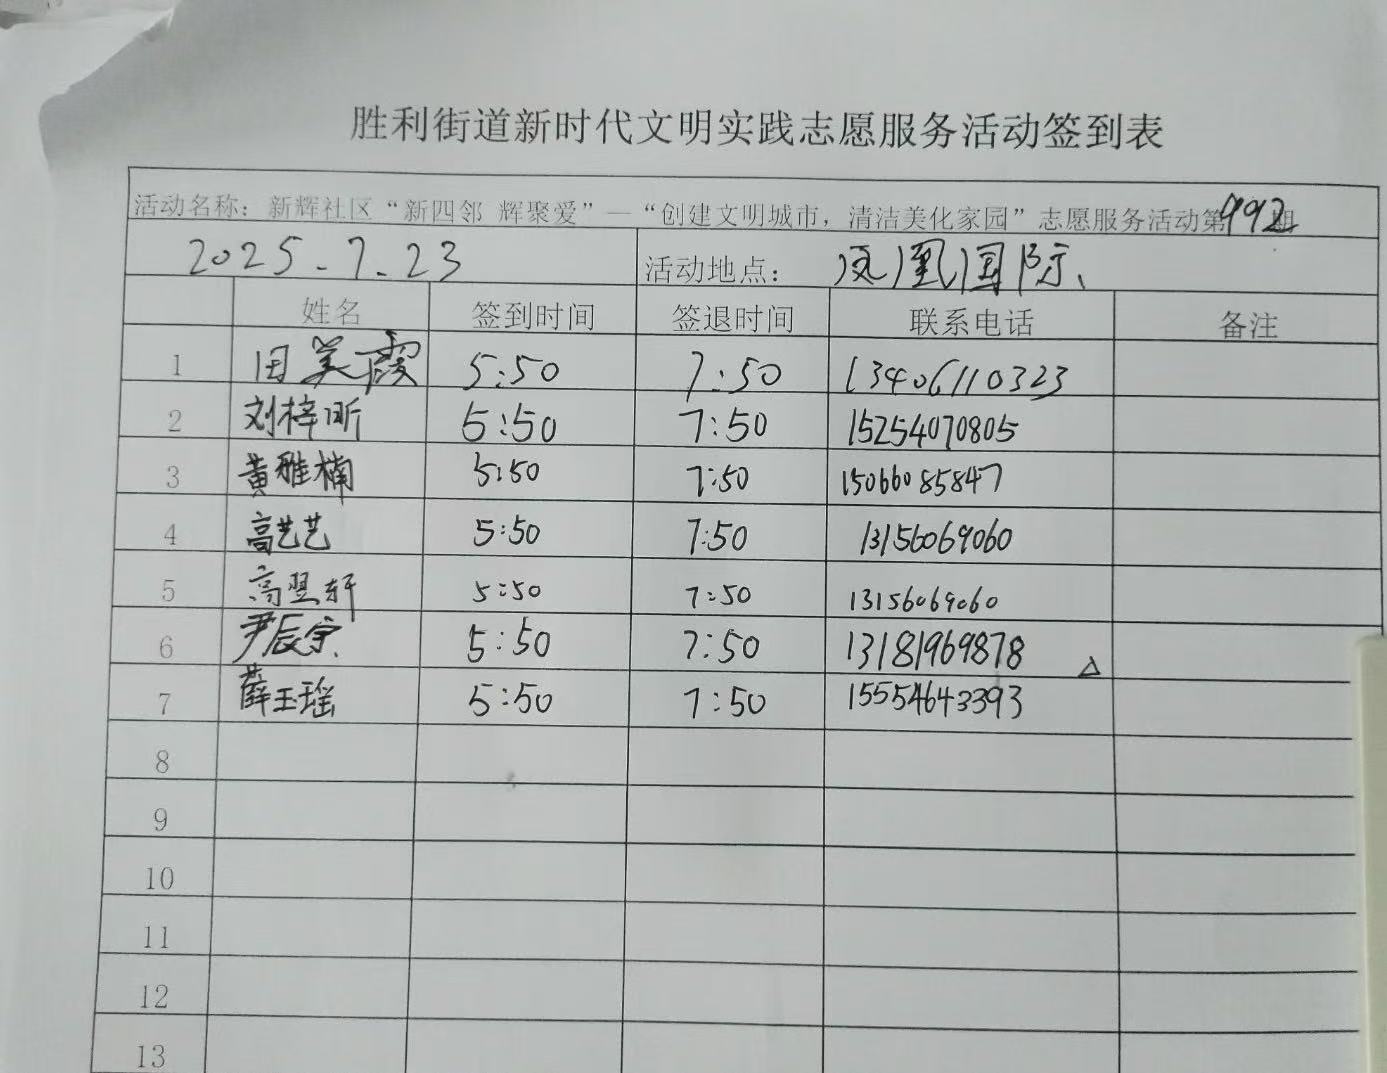 胜利街道新时代文明实践志愿服务活动签到表
活动名称：新辉社区“新四邻 辉聚爱”—“创建文明城市，清洁美化家园”志愿服务活动第992期
2025.7.23 活动地点：凤凰国际、
姓名 签到时间 签退时间 联系电话 备注
1 田美霞 5:50 7:50 13406110323
2 刘梓昕 5:50 7:50 15254070805
3 黄雅楠 5:50 7:50 15066085847
4 高艺艺 5:50 7:50 13156069060
5 高翌轩 5:50 7:50 13156069060
6 尹辰宇 5:50 7:50 13181969878 △
7 薛玉瑶 5:50 7:50 15554643393
8
9
10
11
12
13